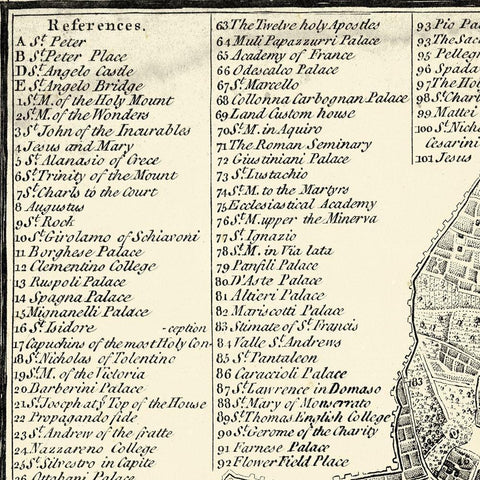 References.
A St. Peter
B St. Peter Place
D St. Angelo Castle
E St. Angelo Bridge
1 St. M. of the Holy Mount
2 St. M. of the Wonders
3 St. John of the Incurables
4 Jesus and Mary
5 St. Alanasio of Crece
6 St. Trinity of the Mount
7 St. Charls to the Court
8 Augustus
9 St. Rock
10 St. Girolamo of Schiavoni
11 Borghese Palace
12 Clementino College
13 Ruspoli Palace
14 Spagna Palace
15 Mignanelli Palace
16 St. Isidore -ception
17 Capuchins of the most Holy Con-
18 St. Nicholas of Tolentino
19 St. M. of the Victoria
20 Barberini Palace
21 St. Joseph at ye Top of the House
22 Propagando fide
23 St. Andrew of the fratte
24 Nazzareno College
25 St. Silvestro in Capite
26 Ottobani Palace
63 The Twelve holy Apostles
64 Muli Papazzurri Palace
65 Academy of France
66 Odescalco Palace
67 St. Marcello
68 Collonna Carbognan Palace
69 Land Custom house
70 St. M. in Aquiro
71 The Roman Seminary
72 Giustiniani Palace
73 St. Eustachio
74 St. M. to the Martyrs
75 Ecclesiastical Academy
76 St. M. upper the Minerva
77 St. Ignazio
78 St. M. in Via lata
79 Panfili Palace
80 D'Aste Palace
81 Altieri Palace
82 Mariscotti Palace
83 Stimate of St. Francis
84 Valle St. Andrews
85 St. Pantaleon
86 Caraccioli Palace
87 St. Lawrence in Domaso
88 St. Mary of Monserrato
89 St. Thomas English College
90 St. Gerome of the Charity
91 Farnese Palace
92 Flower Field Place
93 Pio Pa
93 The Sac
95 Pellegr
96 Spada
97 The Hol
98 St. Chari
99 Mattei
100 St. Nich
Cesarini
101 Jesus
183